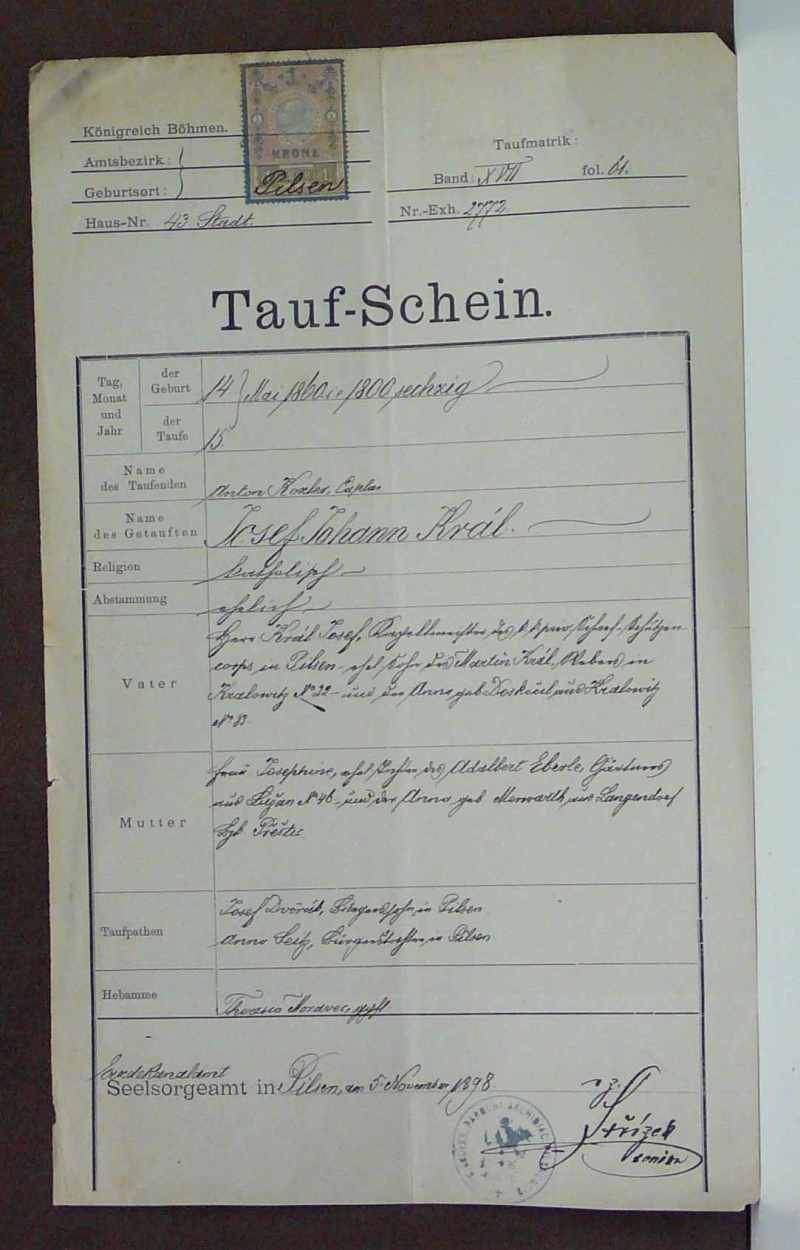 Königreich Böhmen.
Amtsbezirk:
Geburtsort:
KRONE
1
Pilsen
Haus-Nr. 43 Stadt.
Taufmatrik:
Band: XVII fol. 61.
Nr.-Exh. 2772.
Tauf-Schein.
Tag, Monat und Jahr
der Geburt
14 Mai 1860 i.e. 1800 sechzig
der Taufe
15.
Name des Taufenden
Anton Caplan
Name des Getauften
Josef Johann Král.
Religion
katholisch
Abstammung
ehelich
Vater
Herr Král Josef, Kapellmeister des k k priv Scharf-Schützen
corps in Pilsen ehel Sohn des Martin Král, Webers in
Kralowitz No 22 und der Anna geb aus Kralowitz
No 83.
Mutter
Frau Josephine, ehel Tochter des Adalbert Eberle, Gärtners
aus No 46 und der Anna geb aus Langendorf
Bzk
Taufpathen
Josef Dvořák, Bürgerssohn in Pilsen
Anna Seitz, Bürgerstochter in Pilsen
Hebamme
Theresia Moravec, gepft
Erzdekanalamt
Seelsorgeamt in Pilsen, am 5. November 1898.
Střízek